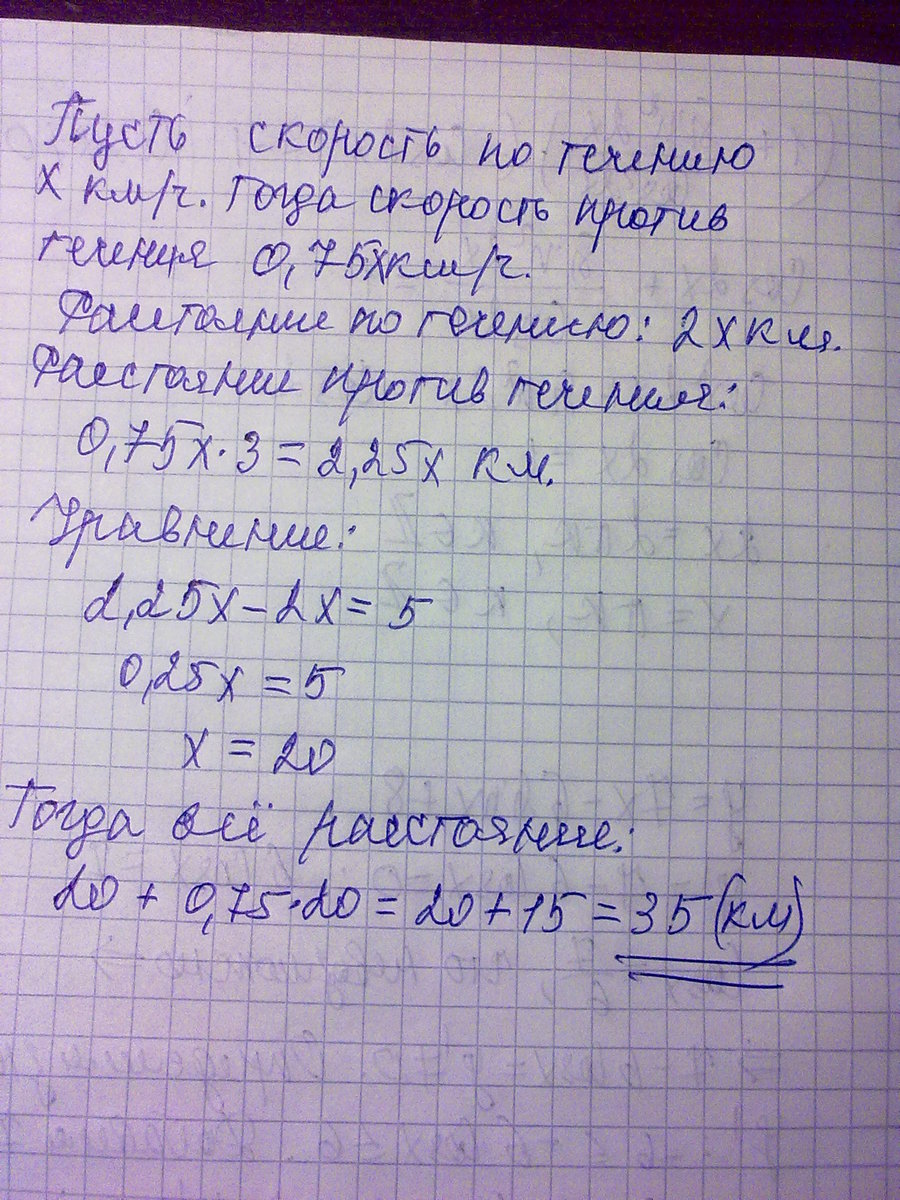 Пусть скорость по течению
х км/ч. Тогда скорость против
течения 0,75х км/ч.
Расстояние по течению: 2х км.
Расстояние против течения:
0,75х·3 = 2,25х км.
Уравнение:
2,25х - 2х = 5
0,25х = 5
х = 20
Тогда всё расстояние:
20 + 0,75·20 = 20 + 15 = 35 (км)